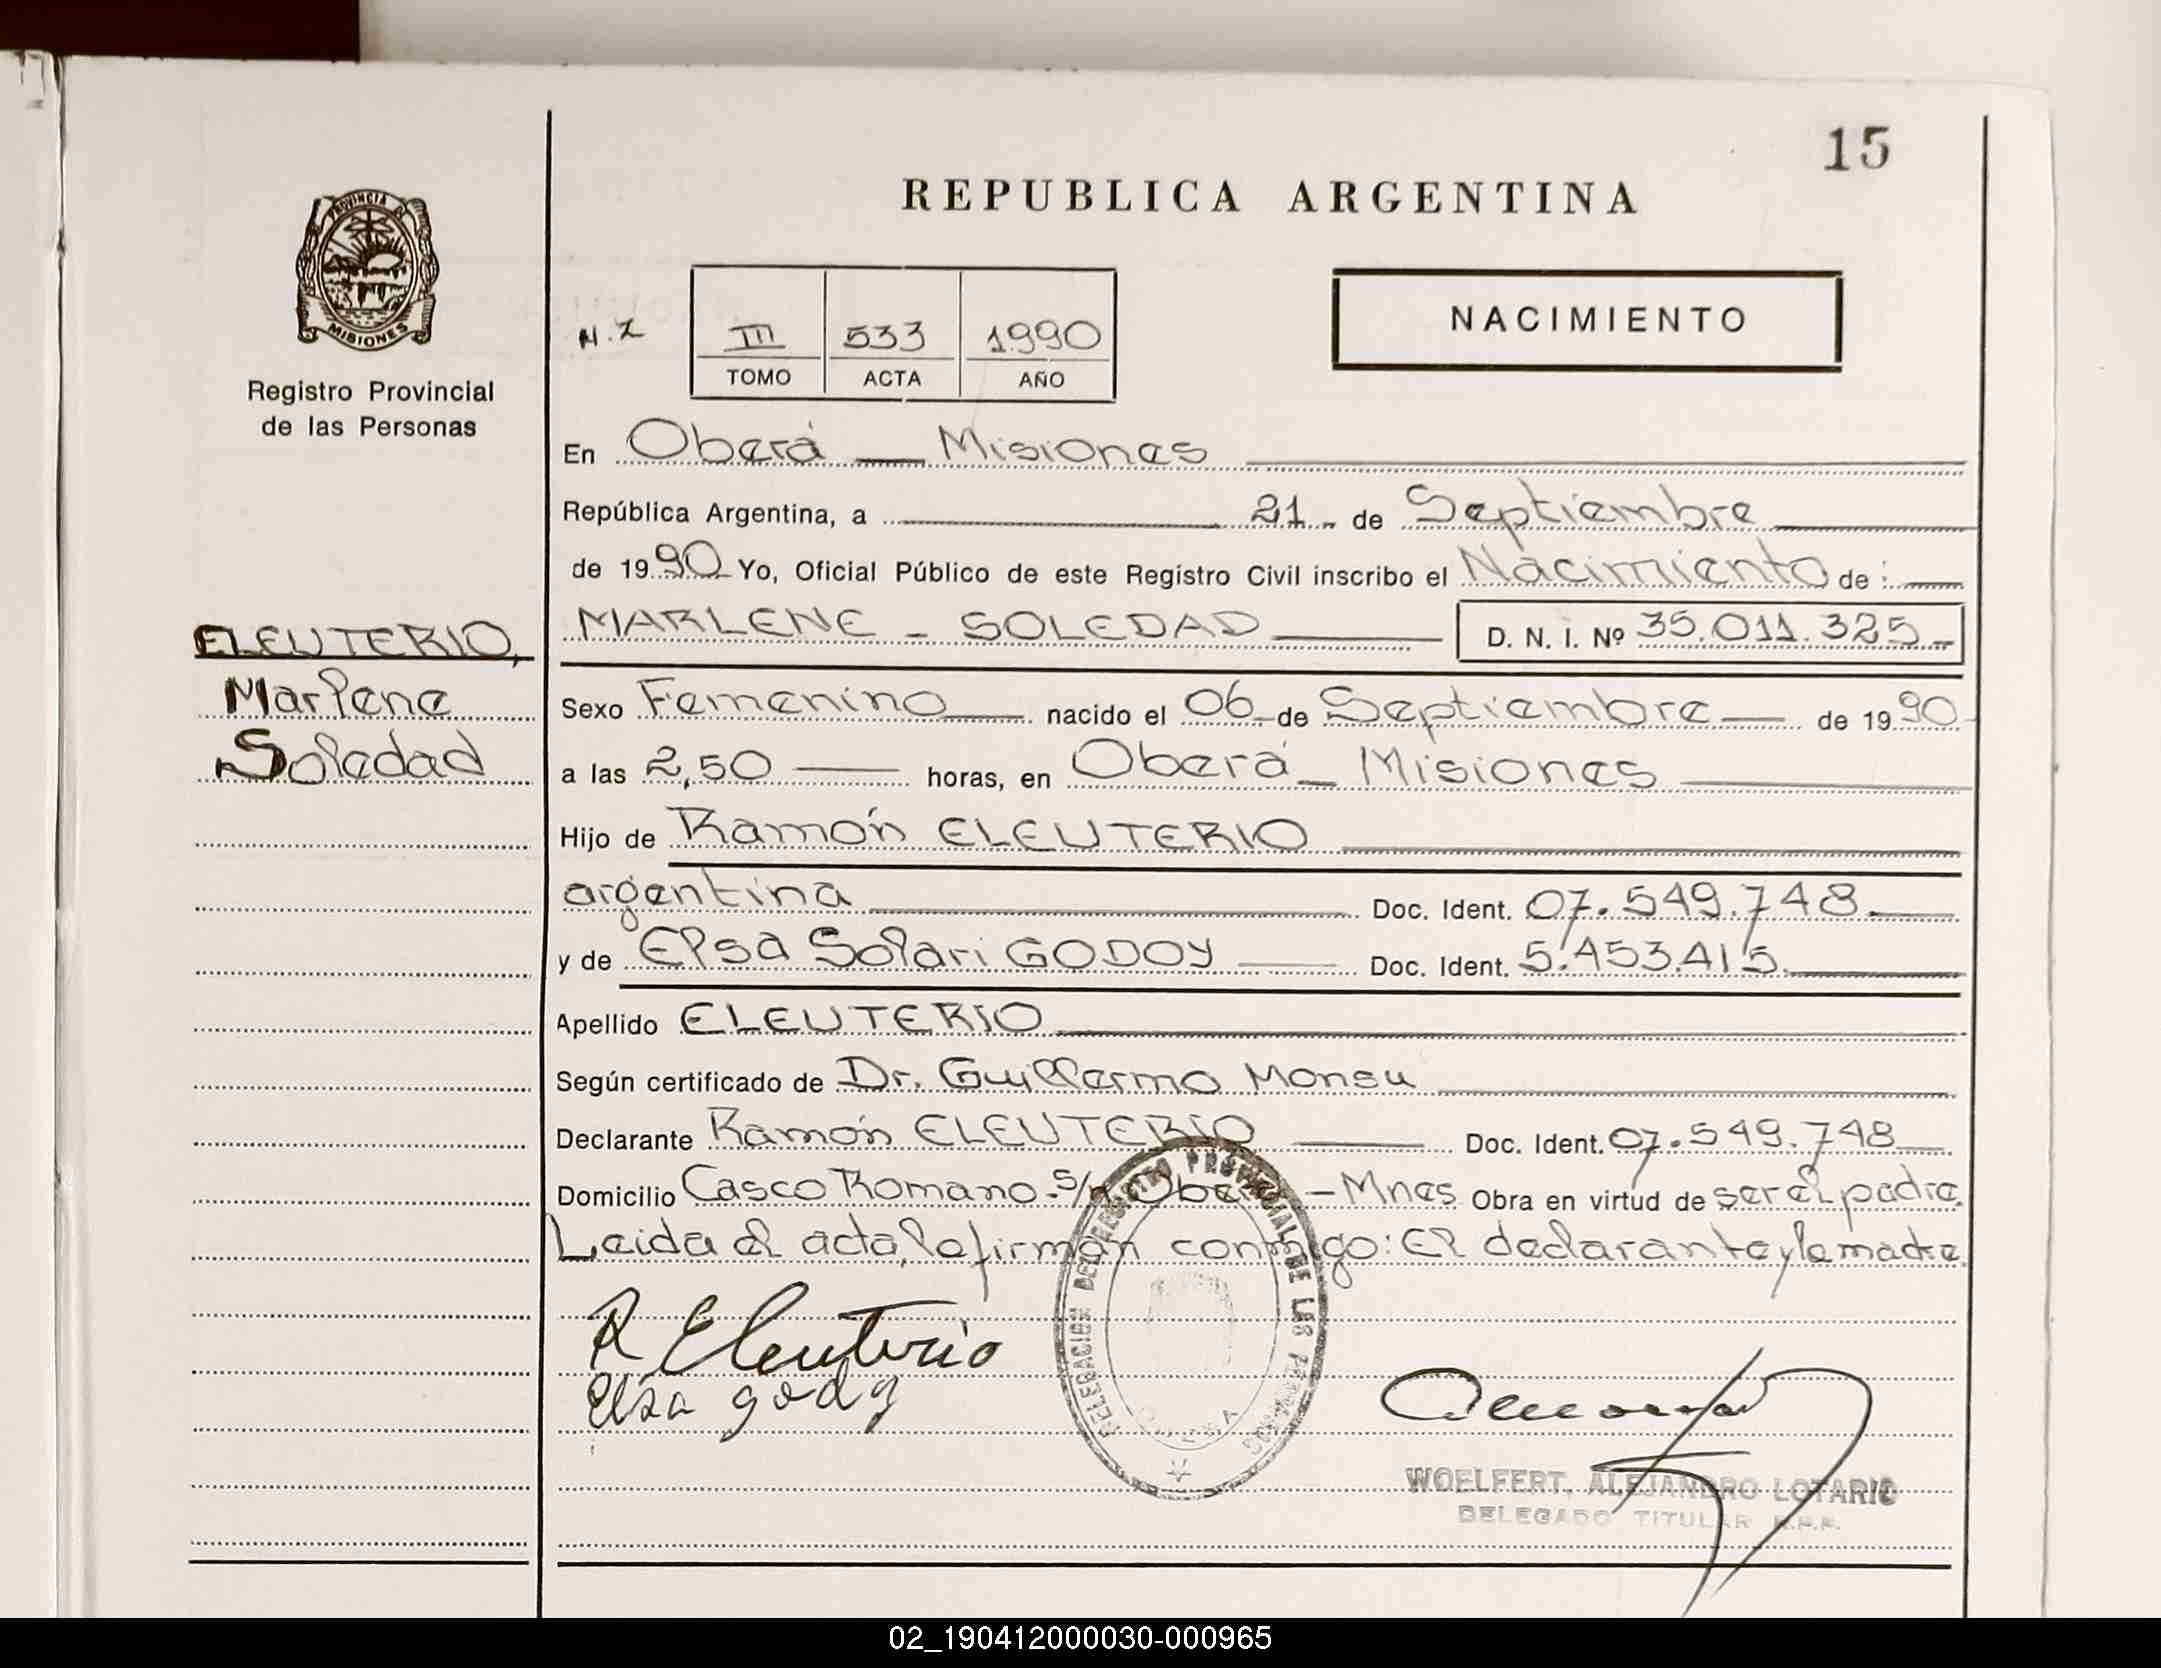 15
REPUBLICA ARGENTINA
PROVINCIA DE
MISIONES
Registro Provincial
de las Personas
N.Z
III 533 1990
TOMO ACTA AÑO
NACIMIENTO
En Oberá - Misiones
República Argentina, a 21 - de Septiembre
de 1990 Yo, Oficial Público de este Registro Civil inscribo el Nacimiento de :
MARLENE - SOLEDAD D. N. I. Nº 35.011.325
ELEUTERIO,
Marlene
Soledad
Sexo Femenino nacido el 06 de Septiembre de 1990
a las 2,50 horas, en Oberá - Misiones
Hijo de Ramón ELEUTERIO
argentina Doc. Ident. 07.549.748
y de Elsa Solari GODOY Doc. Ident. 5.453.415
Apellido ELEUTERIO
Según certificado de Dr. Guillermo Monsu
Declarante Ramón ELEUTERIO Doc. Ident. 07.549.748
Domicilio Casco Romano s/n Oberá - Mnes Obra en virtud de ser el padre.
Leida el acta, la firman conmigo: El declarante y la madre.
R Eleuterio
Elsa godoy
DELEGACION DEL REGISTRO PROVINCIAL DE LAS PERSONAS
OBERA
WOELFERT, ALEJANDRO LOTARIO
DELEGADO TITULAR R.P.P.
02_190412000030-000965